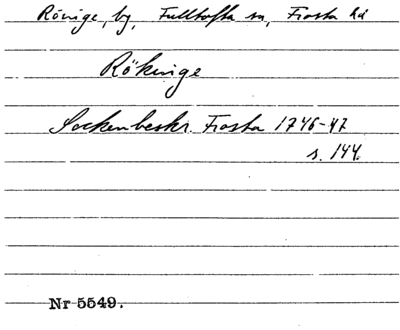 Röinge, by, Fulltofta sn, Frosta hd
Rökinge
Sockenbeskr. Frosta 1746-47
s. 144.
Nr 5549.